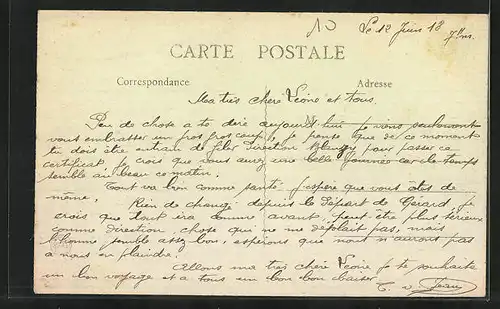 10
Le 12 Juin 18
CARTE POSTALE
Correspondance
Adresse
Ma très chère Léone et tous.
Peu de chose a te dire aujourd'hui je viens seulement
vous embrasser un gros gros coup, je pense que de ce moment
tu dois être entrain de filer direction Blangy pour passer ce
certificat, je crois que vous aurez une belle journée car le temps
semble au beau ce matin.
Tout va bien comme santé j'espère que vous êtes de
même. Rien de changé depuis le départ de Gérard, je
crois que tout ira comme avant, peut être plus sérieux
comme direction, chose qui ne me déplait pas, mais
l'homme semble assez bon, espérons que nous n'aurons pas
a nous en plaindre.
Allons ma très chère Léone je te souhaite
un bon voyage et a tous un bon bon baiser